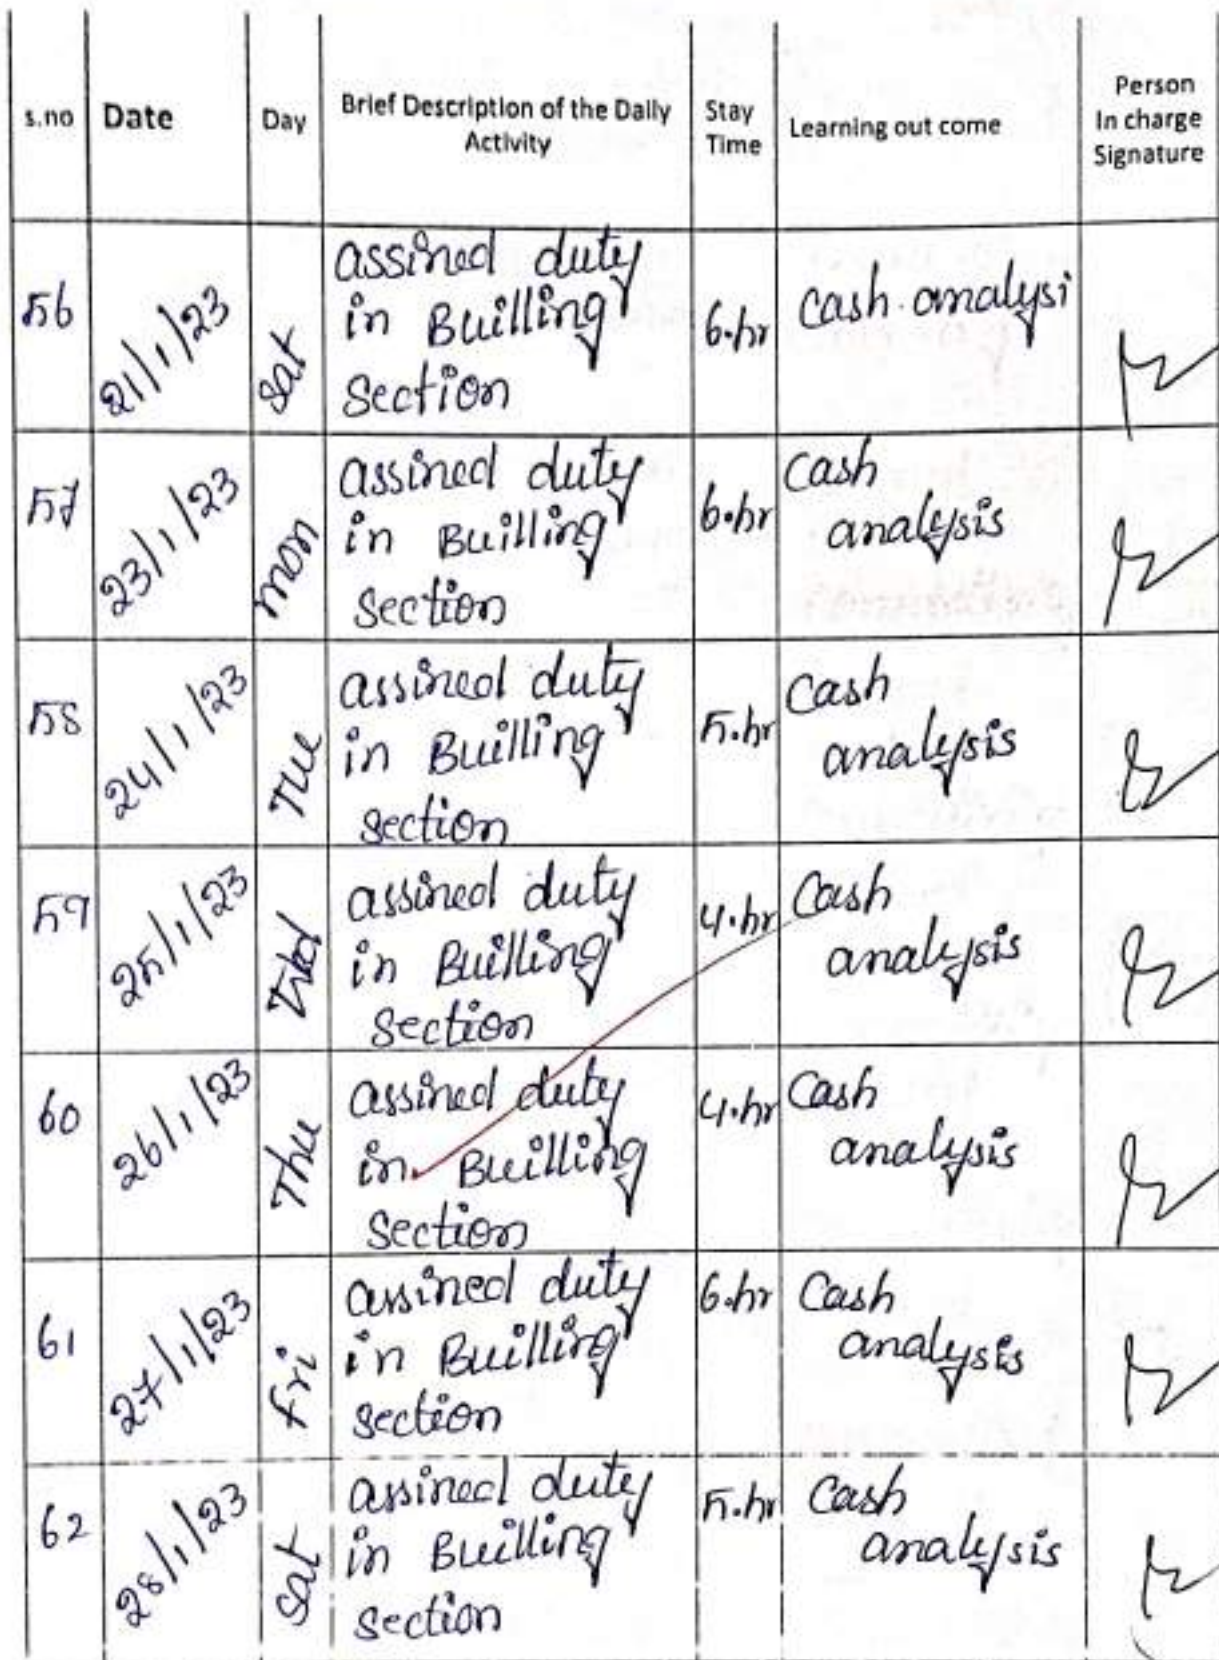 s.no Date Day Brief Description of the Daily Activity Stay Time Learning out come Person In charge Signature
56 21/1/23 Sat assined duty in Builling section 6.hr Cash analysi
57 23/1/23 mon assined duty in Builling section 6.hr Cash analysis
58 24/1/23 Tue assined duty in Builling section 5.hr Cash analysis
59 25/1/23 Wed assined duty in Builling section 4.hr Cash analysis
60 26/1/23 Thu assined duty in Builling section 4.hr Cash analysis
61 27/1/23 fri assined duty in Builling section 6.hr Cash analysis
62 28/1/23 Sat assined duty in Builling section 5.hr Cash analysis